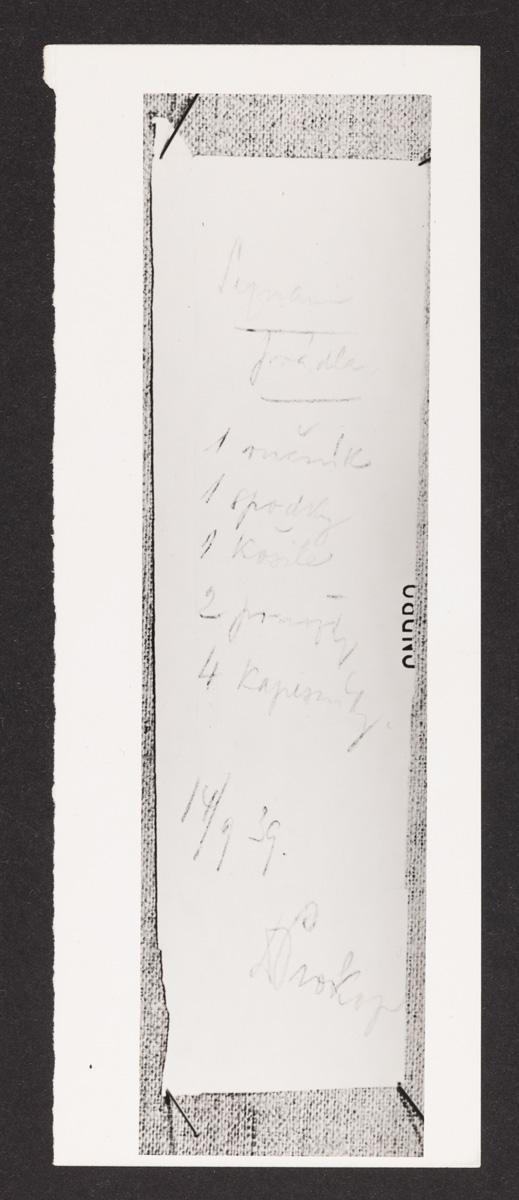 Seznam
prádla
1 ručník
1 spodky
1 Košile
2 ponožky
4 Kapesníky.
14/9 39.
Prokop